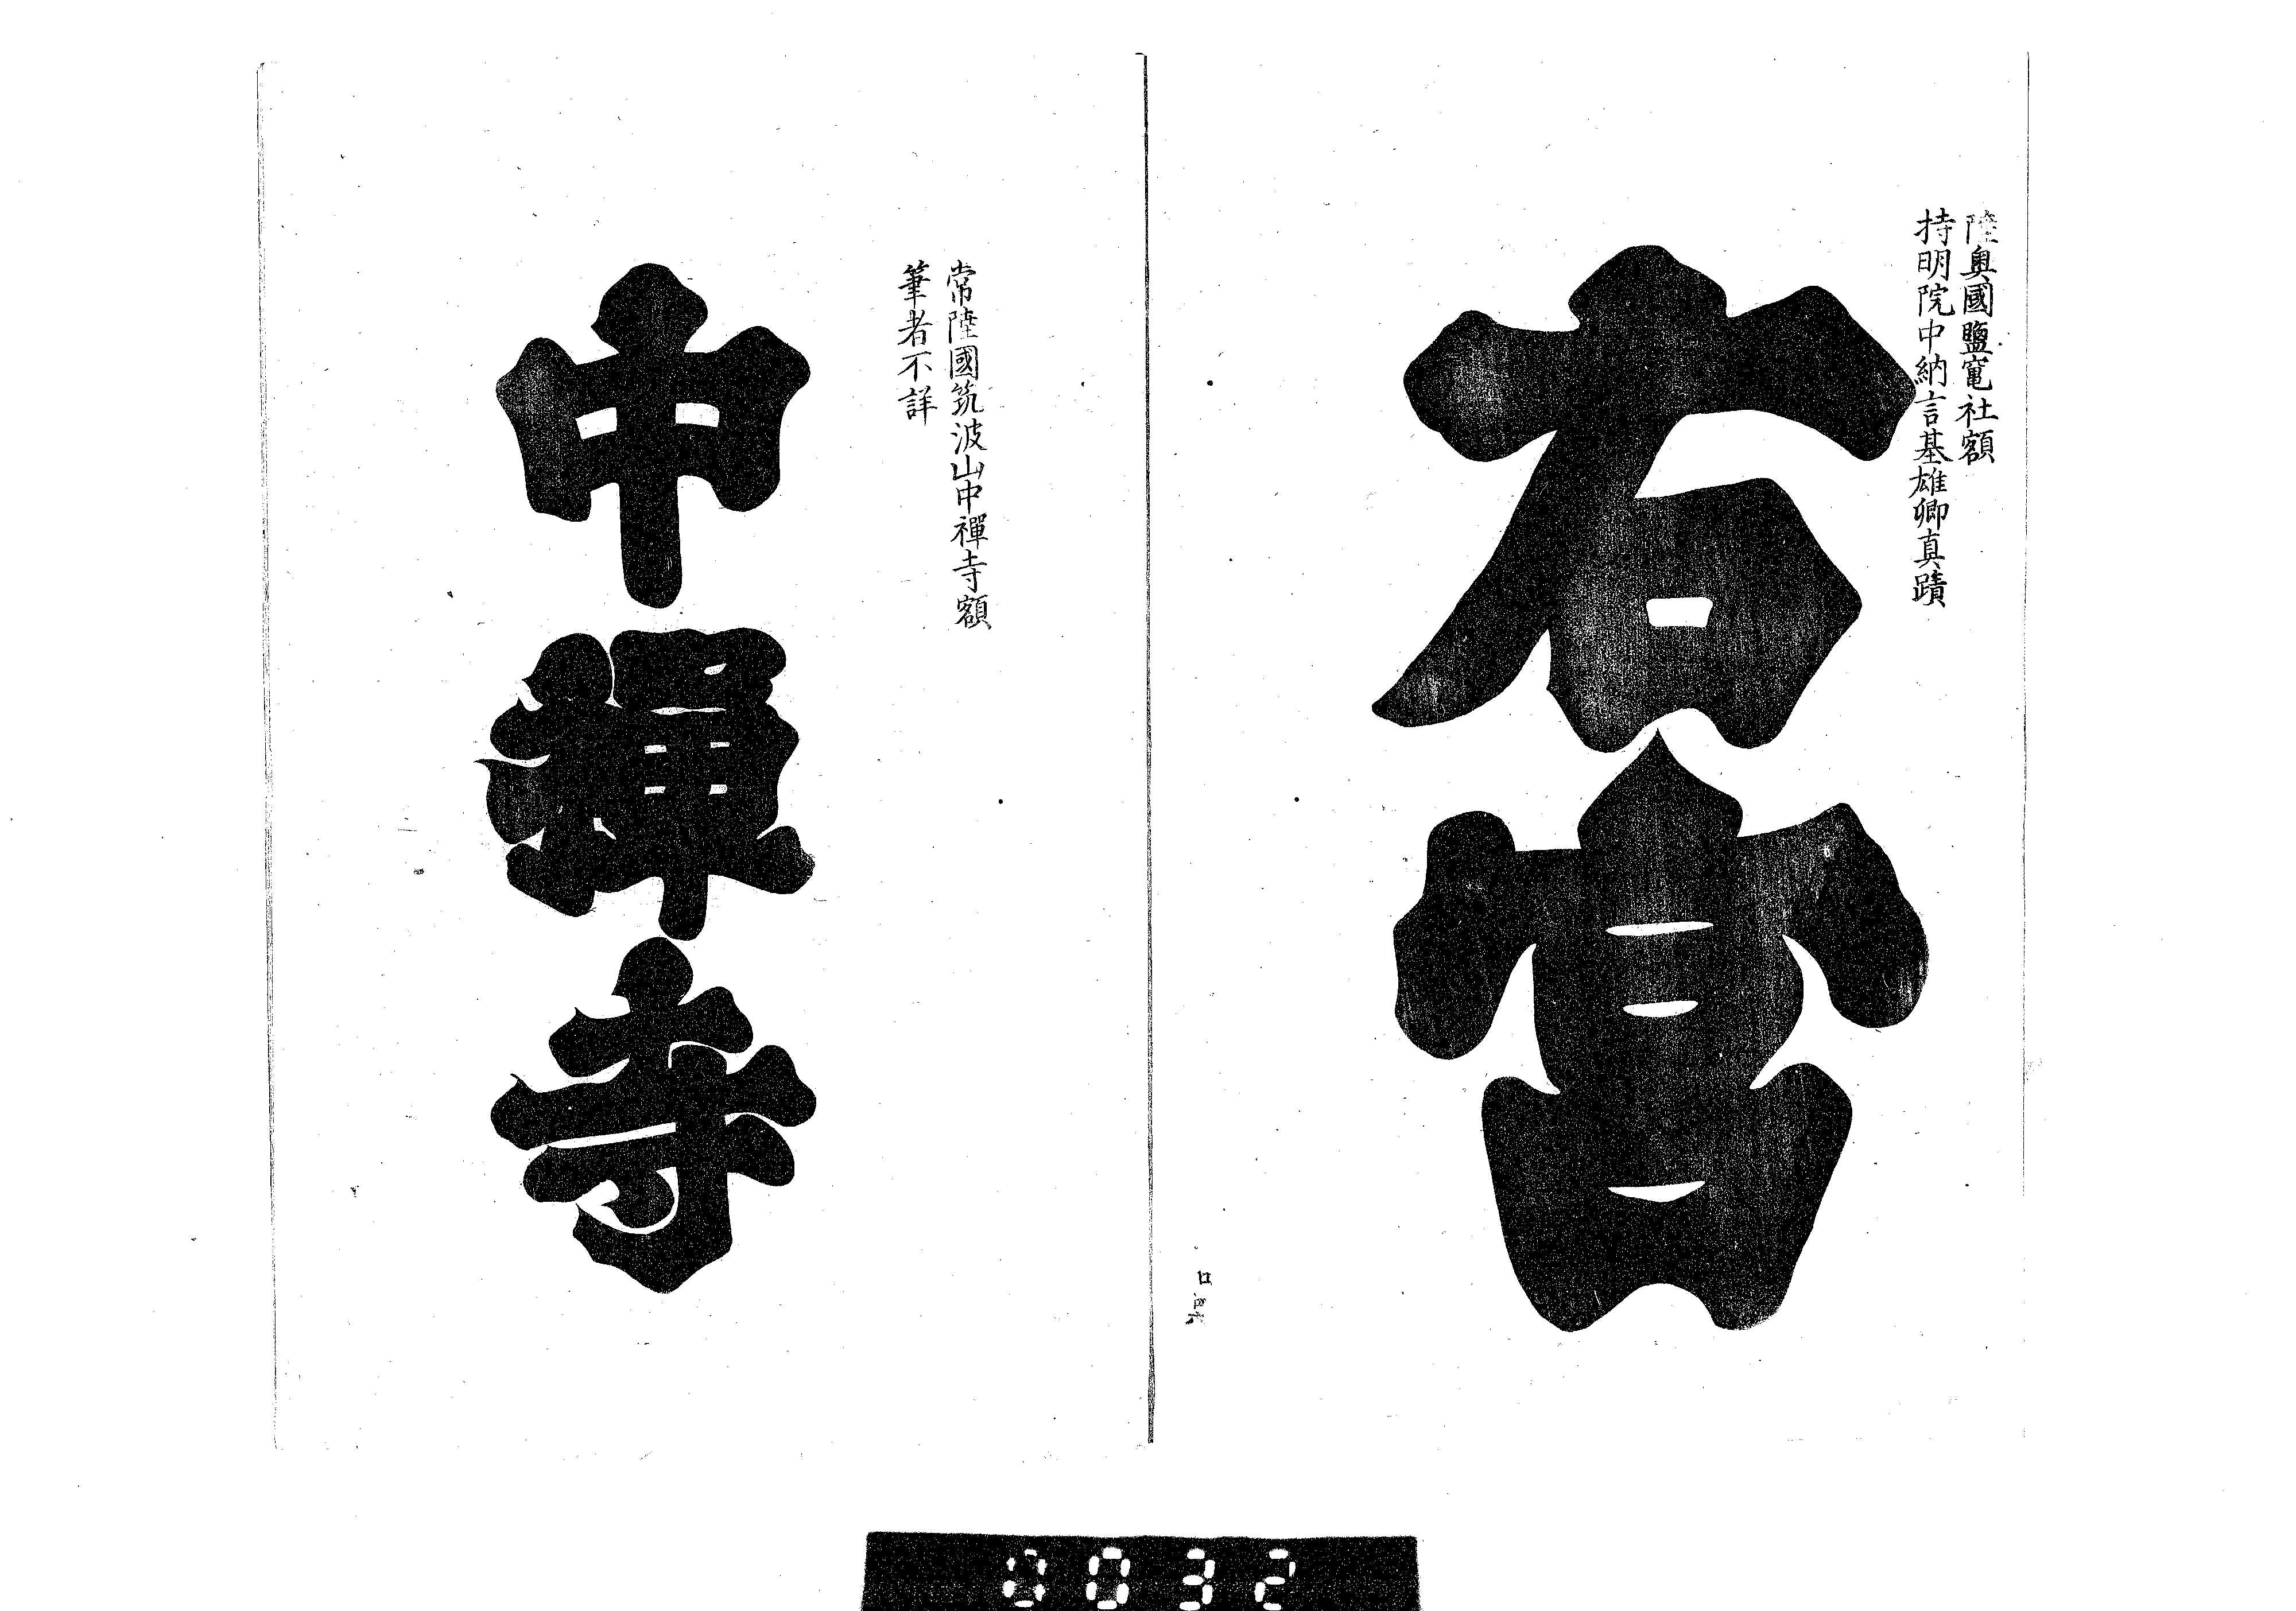 陸奥國鹽竃社額
持明院中納言基雄卿真蹟
右宮
常陸國筑波山中禪寺額
筆者不詳
中禪寺
0032